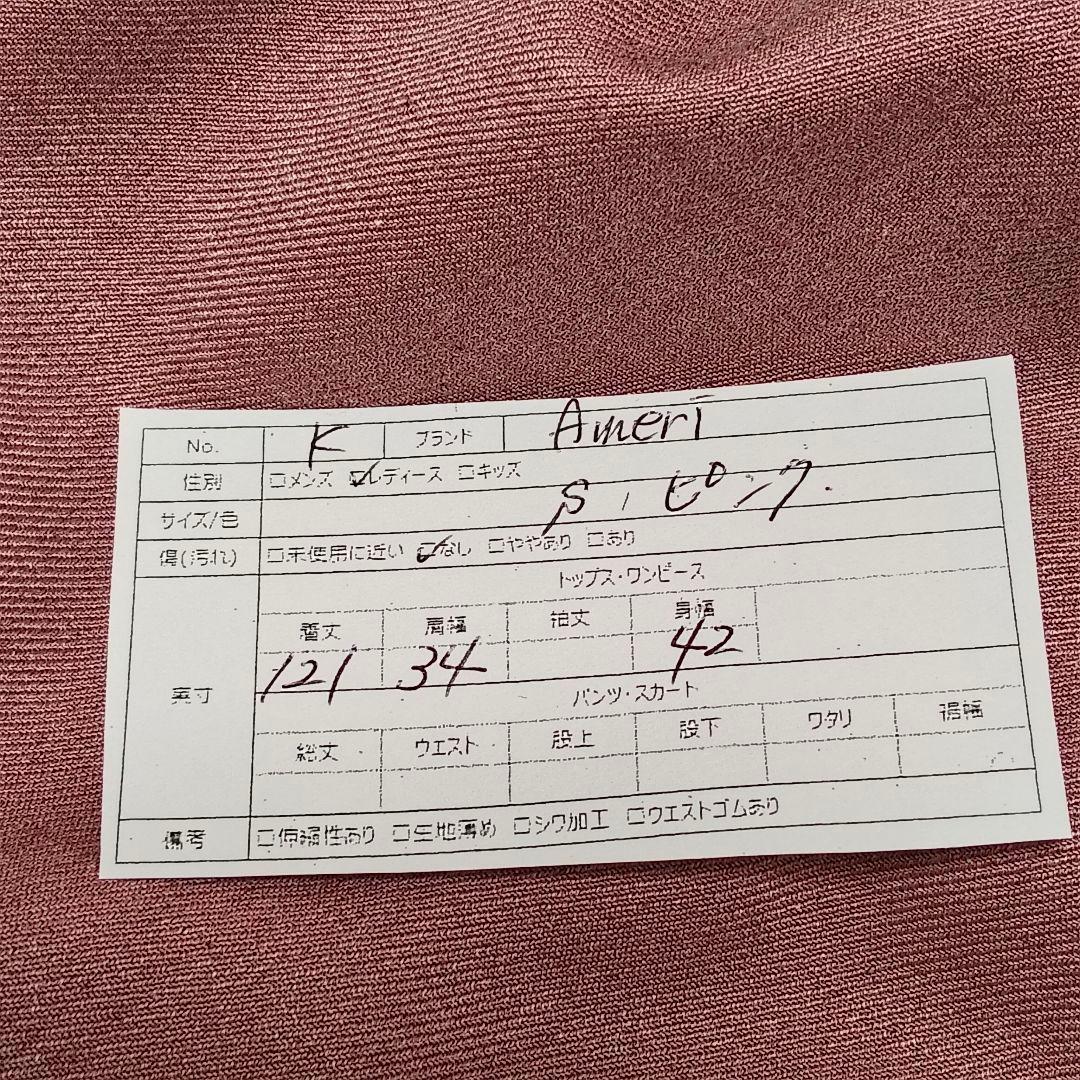 No. K ブランド Ameri
性別 □メンズ ☑レディース □キッズ
サイズ/色 S / ピンク.
傷(汚れ) □未使用に近い ☑なし □ややあり □あり
実寸
トップス・ワンピース
着丈 肩幅 袖丈 身幅
121 34 42
パンツ・スカート
総丈 ウエスト 股上 股下 ワタリ 裾幅
備考 □伸縮性あり □生地薄め □シワ加工 □ウエストゴムあり